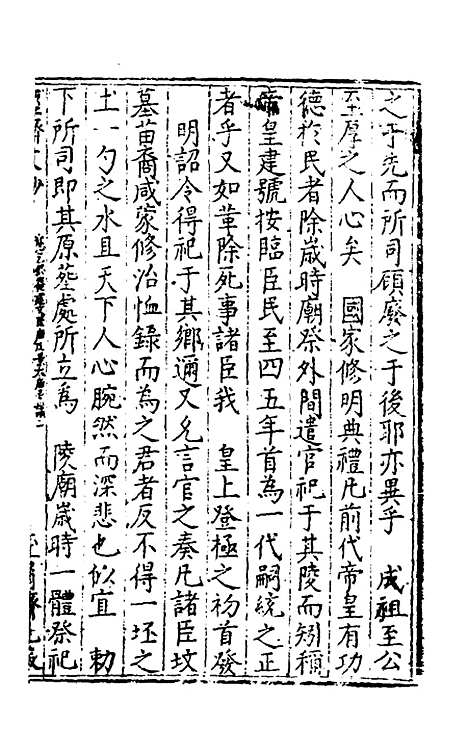 之于先而所司顧廢之于後耶亦異乎 成祖至公
至厚之人心矣 國家修明典禮凡前代帝皇有功
德於民者除歲時廟祭外間遣官祀于其陵而矧稱
帝皇建號按臨臣民至四五年首為一代嗣統之正
者乎又如革除死事諸臣我 皇上登極之初首發
明詔令得祀于其鄉邇又允言官之奏凡諸臣坟
墓苗裔咸蒙修治恤錄而為之君者反不得一坯之
土一勺之水且天下人心腕然而深悲也似宜 勅
下所司即其原塟處所立為 陵廟歲時一體祭祀